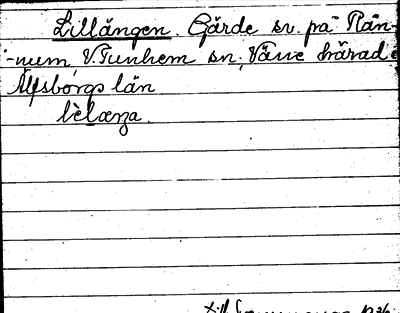 Lillängen. Gärde sv. på Rån-
-num, V. Tunhem sn, Väne härad
Älfsborgs län
lèlæŋa.